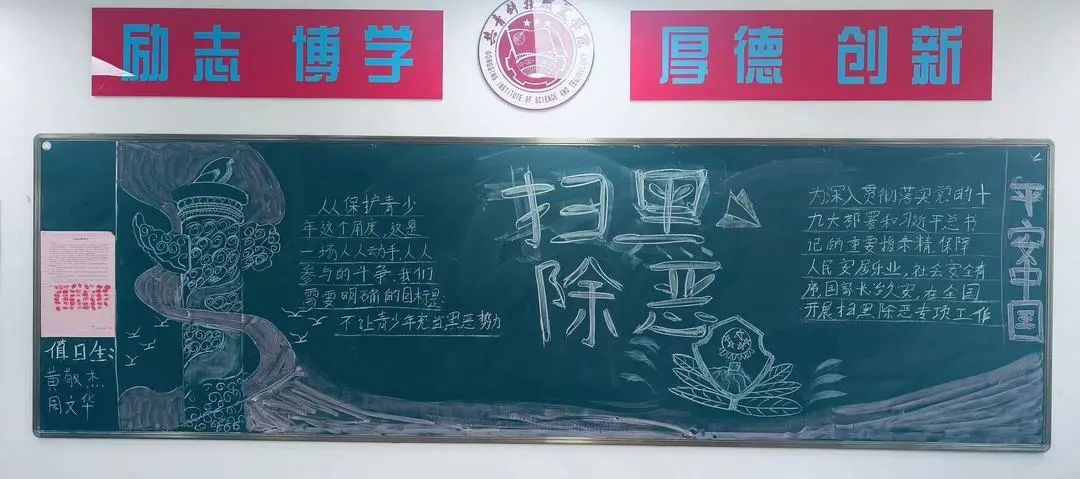 励志 博学
GONGQING INSTITUTE OF SCIENCE AND TECHNOLOGY
厚德 创新
值日生:
黄敬杰
周文华
从保护青少
年这个角度,这是
一场人人动手,人人
参与的斗争,我们
需要明确的目标是:
不让青少年充当黑恶势力
扫黑
除恶
为深入贯彻落实党的十
九大部署和习近平总书
记的重要指示精,保障
人民安居乐业,社会安全有
序国家长治久安,在全国
开展扫黑除恶专项工作
平安中国